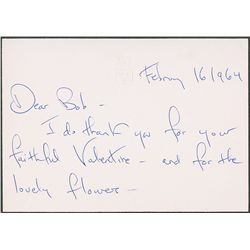 Februry 16 1964
Dear Bob -
I do thank you for your
faithful Valentine - and for the
lovely flowers -